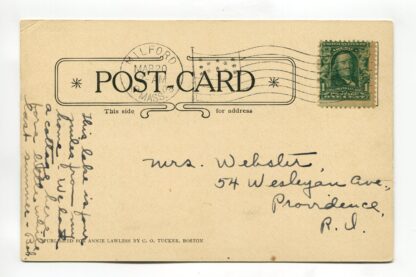 MILFORD
MAR 20
MASS.
POST-CARD
This side
for address
Mrs. Webster,
54 Wesleyan Ave,
Providence,
R. I.
This lake is four
miles from my
home. We had
a cottage here
for a
last summer
PUBLISHED FOR ANNIE LAWLESS BY C. O. TUCKER, BOSTON